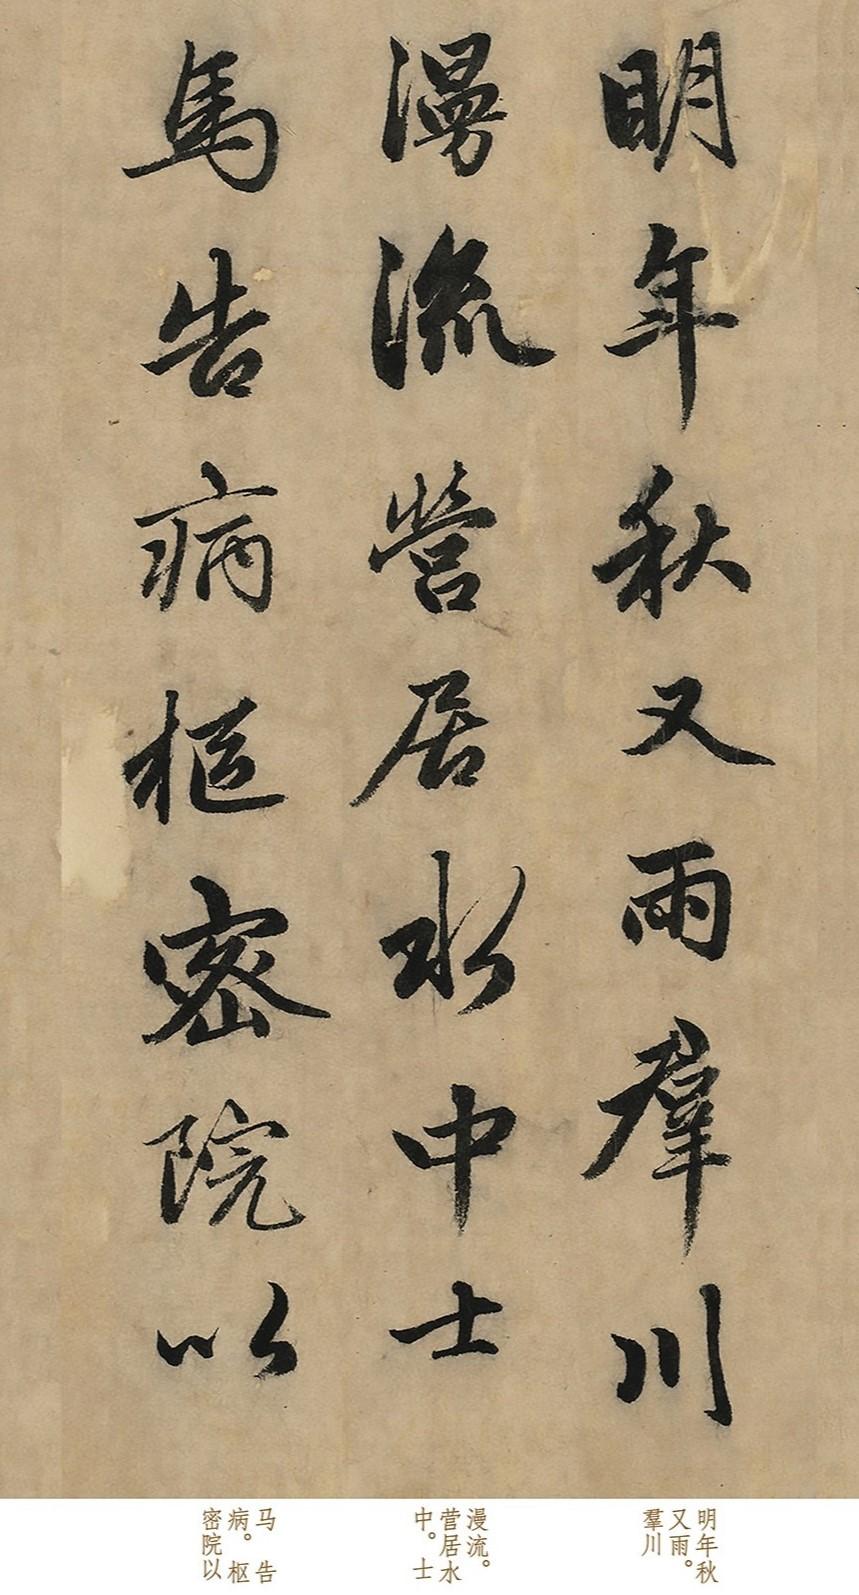 明年秋又雨羣川
漫流營居水中士
馬告病樞密院以
明年秋
又雨。
羣川
漫流。
营居水
中。士
马告
病。枢
密院以